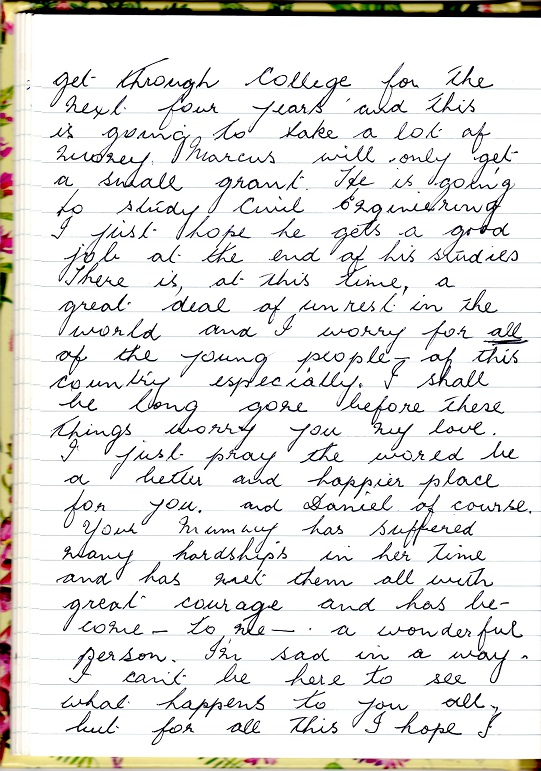 get through College for the
next four years and this
is going to take a lot of
money. Marcus will only get
a small grant. He is going
to study Civil Engineering
I just hope he gets a good
job at the end of his studies
There is, at this time, a
great deal of unrest in the
world and I worry for all
of the young people – of this
country especially. I shall
be long gone before these
things worry you my love.
I just pray the world be
a better and happier place
for you. and Daniel of course.
Your Mummy has suffered
many hardships in her time
and has met them all with
great courage and has be-
come – to me – a wonderful
person. I'm sad in a way.
I can't be here to see
what happens to you all,
but for all this I hope I